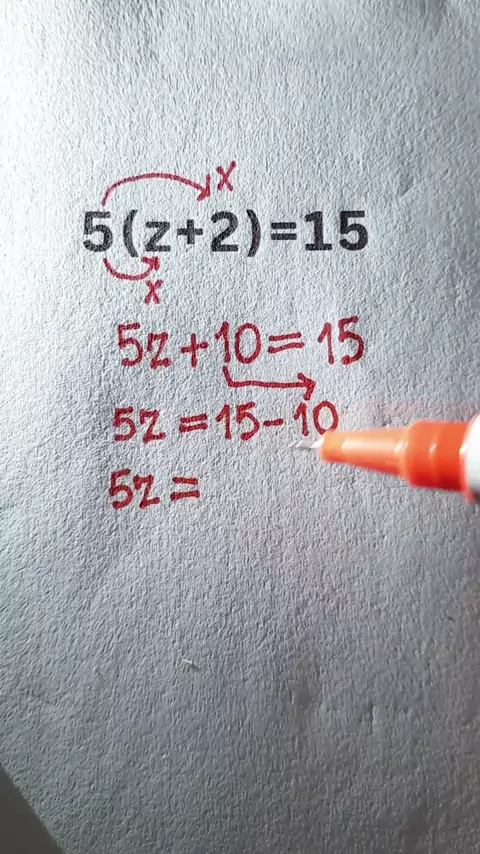 x
5(z+2)=15
x
5z+10=15
5z=15-10
5z=